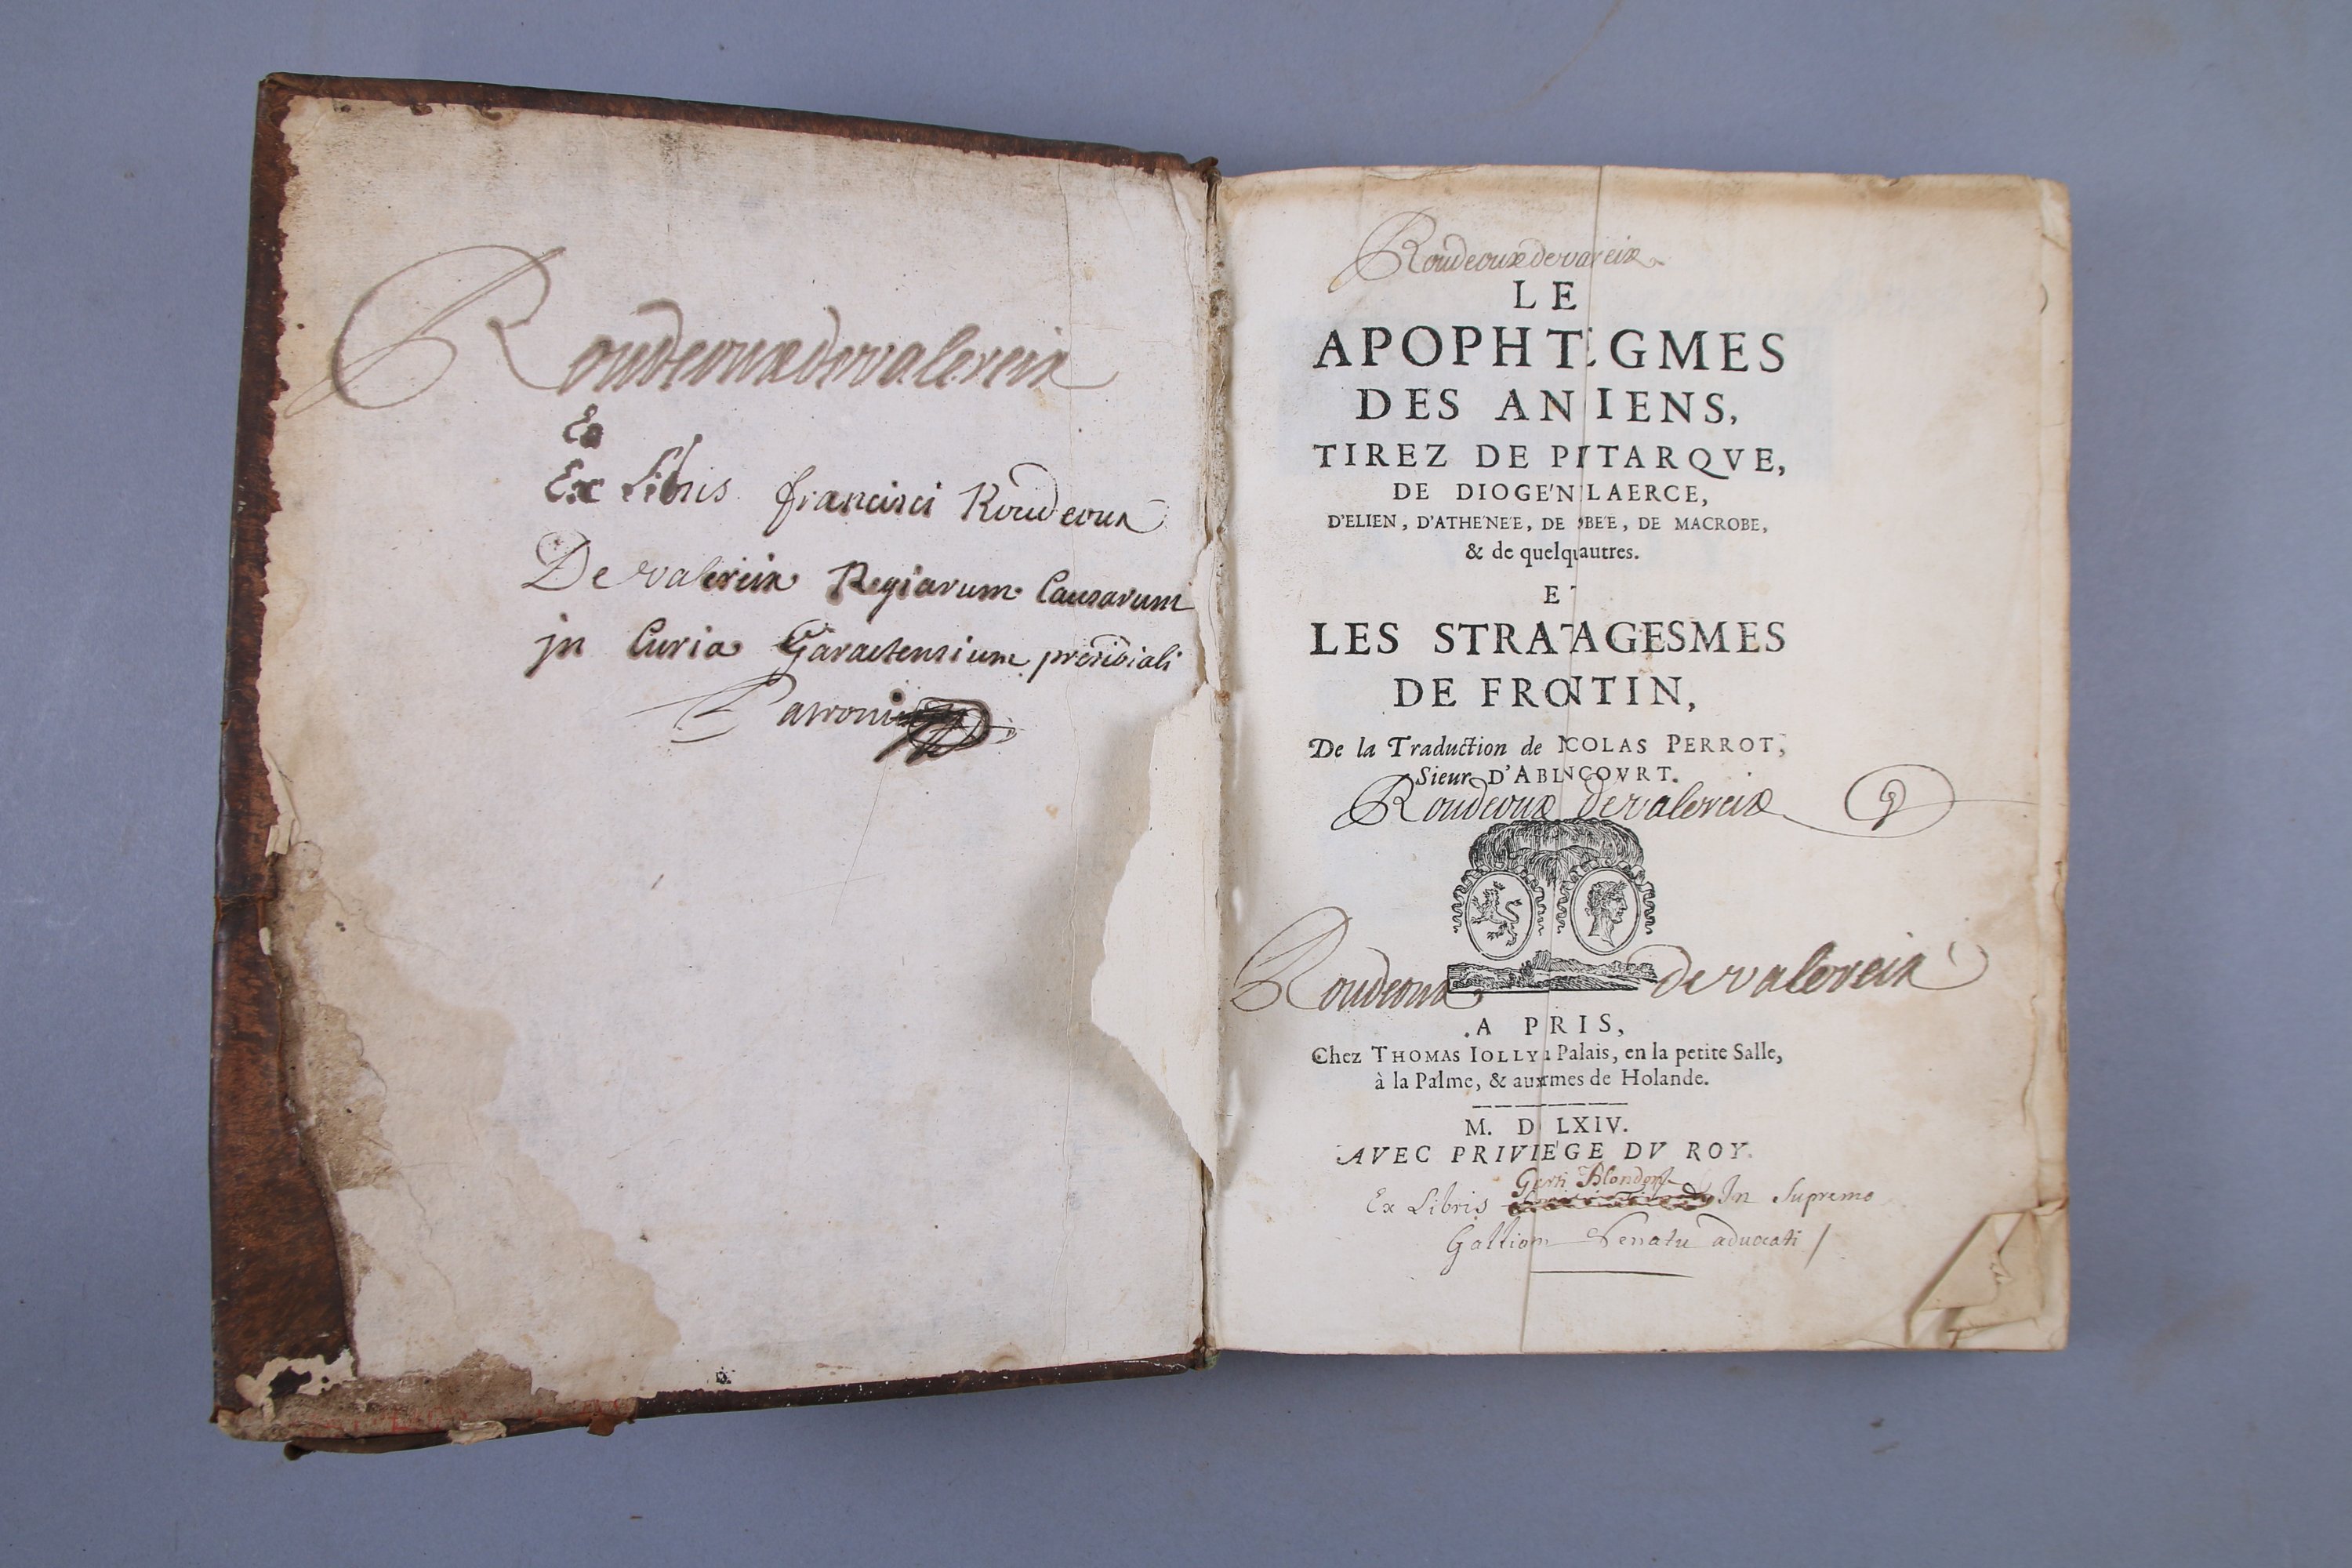 Roudeouxdevalereix
Ex
Ex Libris francisci Roudeoux
De valereix Regiarum Causarum
jn Curia Garactensium presidiali
Patroni
Roudeouxdevareix
LE
APOPHTEGMES
DES ANIENS,
TIREZ DE PITARQVE,
DE DIOGE'N LAERCE,
D'ELIEN, D'ATHE'NE'E, DE OBE'E, DE MACROBE,
& de quelqautres.
ET
LES STRATAGESMES
DE FRONTIN,
De la Traduction de NCOLAS PERROT,
Sieur D'ABLNCOVRT.
Roudeoux devalereix
Roudeoux devalereix
A PRIS,
Chez THOMAS IOLLY Palais, en la petite Salle,
à la Palme, & auxrmes de Holande.
M. D LXIV.
AVEC PRIVIEGE DV ROY.
Ex Libris In Supremo
Galliam Senatu aduocati